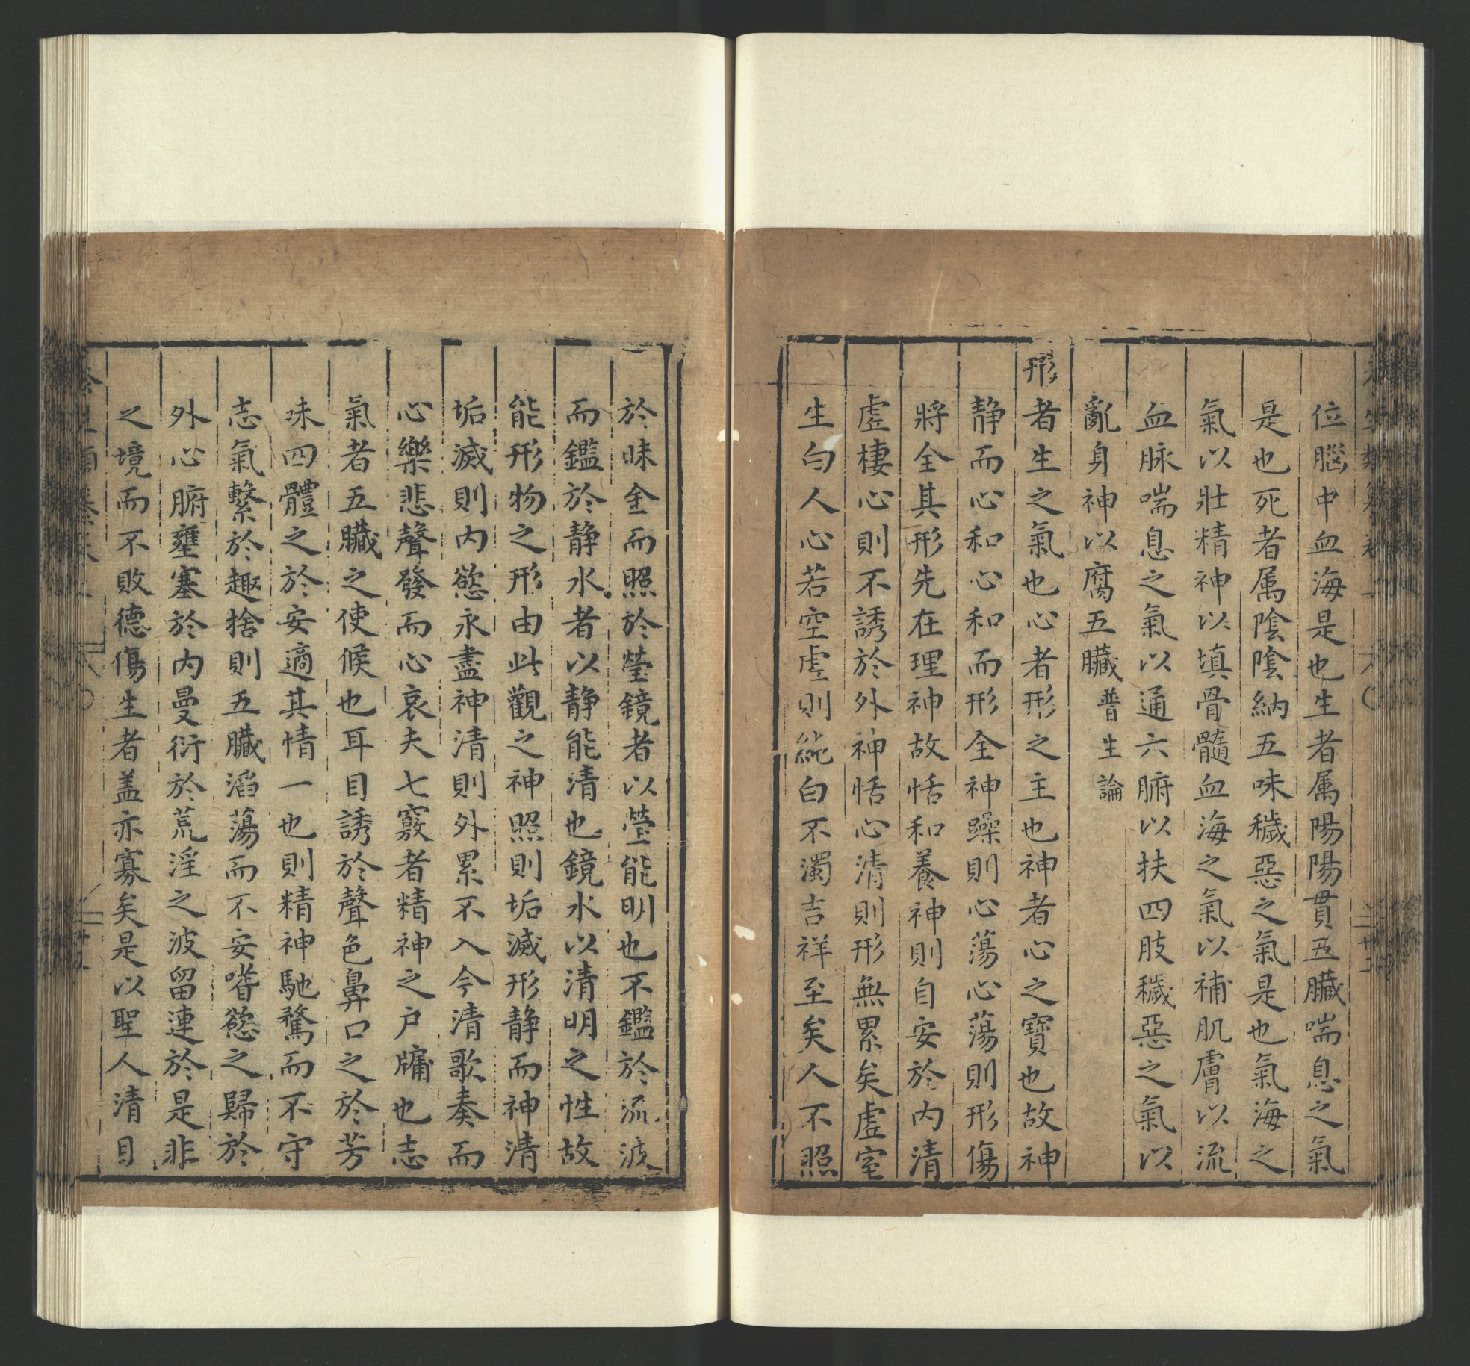 位腦中血海是也生者属陽陽貫五臟喘息之氣
是也死者属陰陰納五味穢惡之氣是也氣海之
氣以壯精神以填骨髓血海之氣以補肌膚以流
血脉喘息之氣以通六腑以扶四肢穢惡之氣以
亂身神以腐五臟普生論
形者生之氣也心者形之主也神者心之寶也故神
静而心和心和而形全神躁則心蕩心蕩則形傷
將全其形先在理神故恬和養神則自安於内清
虛棲心則不誘於外神恬心清則形無累矣虛室
生白人心若空虛則純白不濁吉祥至矣人不照
於昧金而照於瑩鏡者以瑩能明也不鑑於流波
而鑑於静水者以静能清也鏡水以清明之性故
能形物之形由此觀之神照則垢滅形静而神清
垢滅則内慾永盡神清則外累不入今清歌奏而
心樂悲聲發而心哀夫七竅者精神之户牗也志
氣者五臟之使候也耳目誘於聲色鼻口之於芳
味四體之於安適其情一也則精神馳騖而不守
志氣繫於趣捨則五臟滔蕩而不安嗜慾之歸於
外心腑壅塞於内曼衍於荒淫之波留連於是非
之境而不敗德傷生者盖亦寡矣是以聖人清目